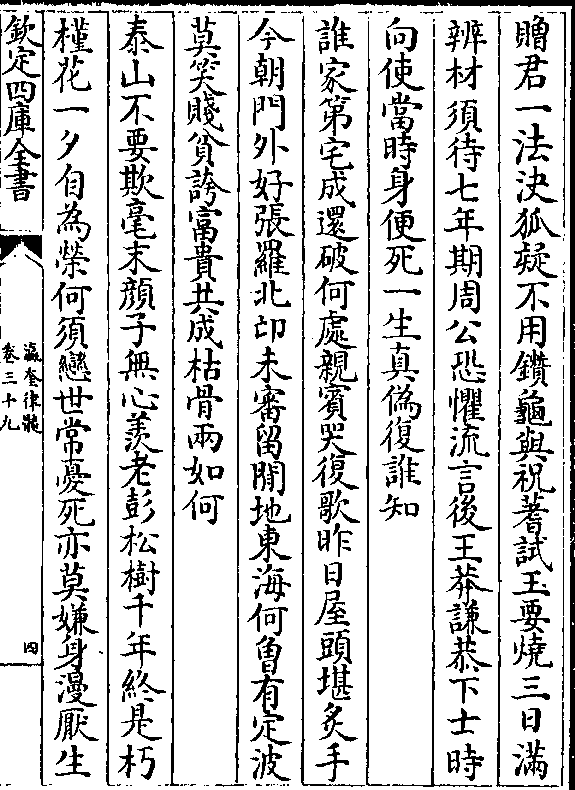 贈君一法決狐疑不用鑽龜與祝蓍試玉要燒三日滿
辨材須待七年期周公恐懼流言後王莽謙恭下士時
向使當時身便死一生真偽復誰知
誰家第宅成還破何處親賓哭復歌昨日屋頭堪炙手
今朝門外好張羅北邙未審留閒地東海何曽有定波
莫笑賤貧誇富貴共成枯骨兩如何
泰山不要欺毫末顔子無心羨老彭松樹千年終是朽
槿花一夕自為榮何須戀世常憂死亦莫嫌身漫厭生
欽定四庫全書
瀛奎律髓
卷三十九
四